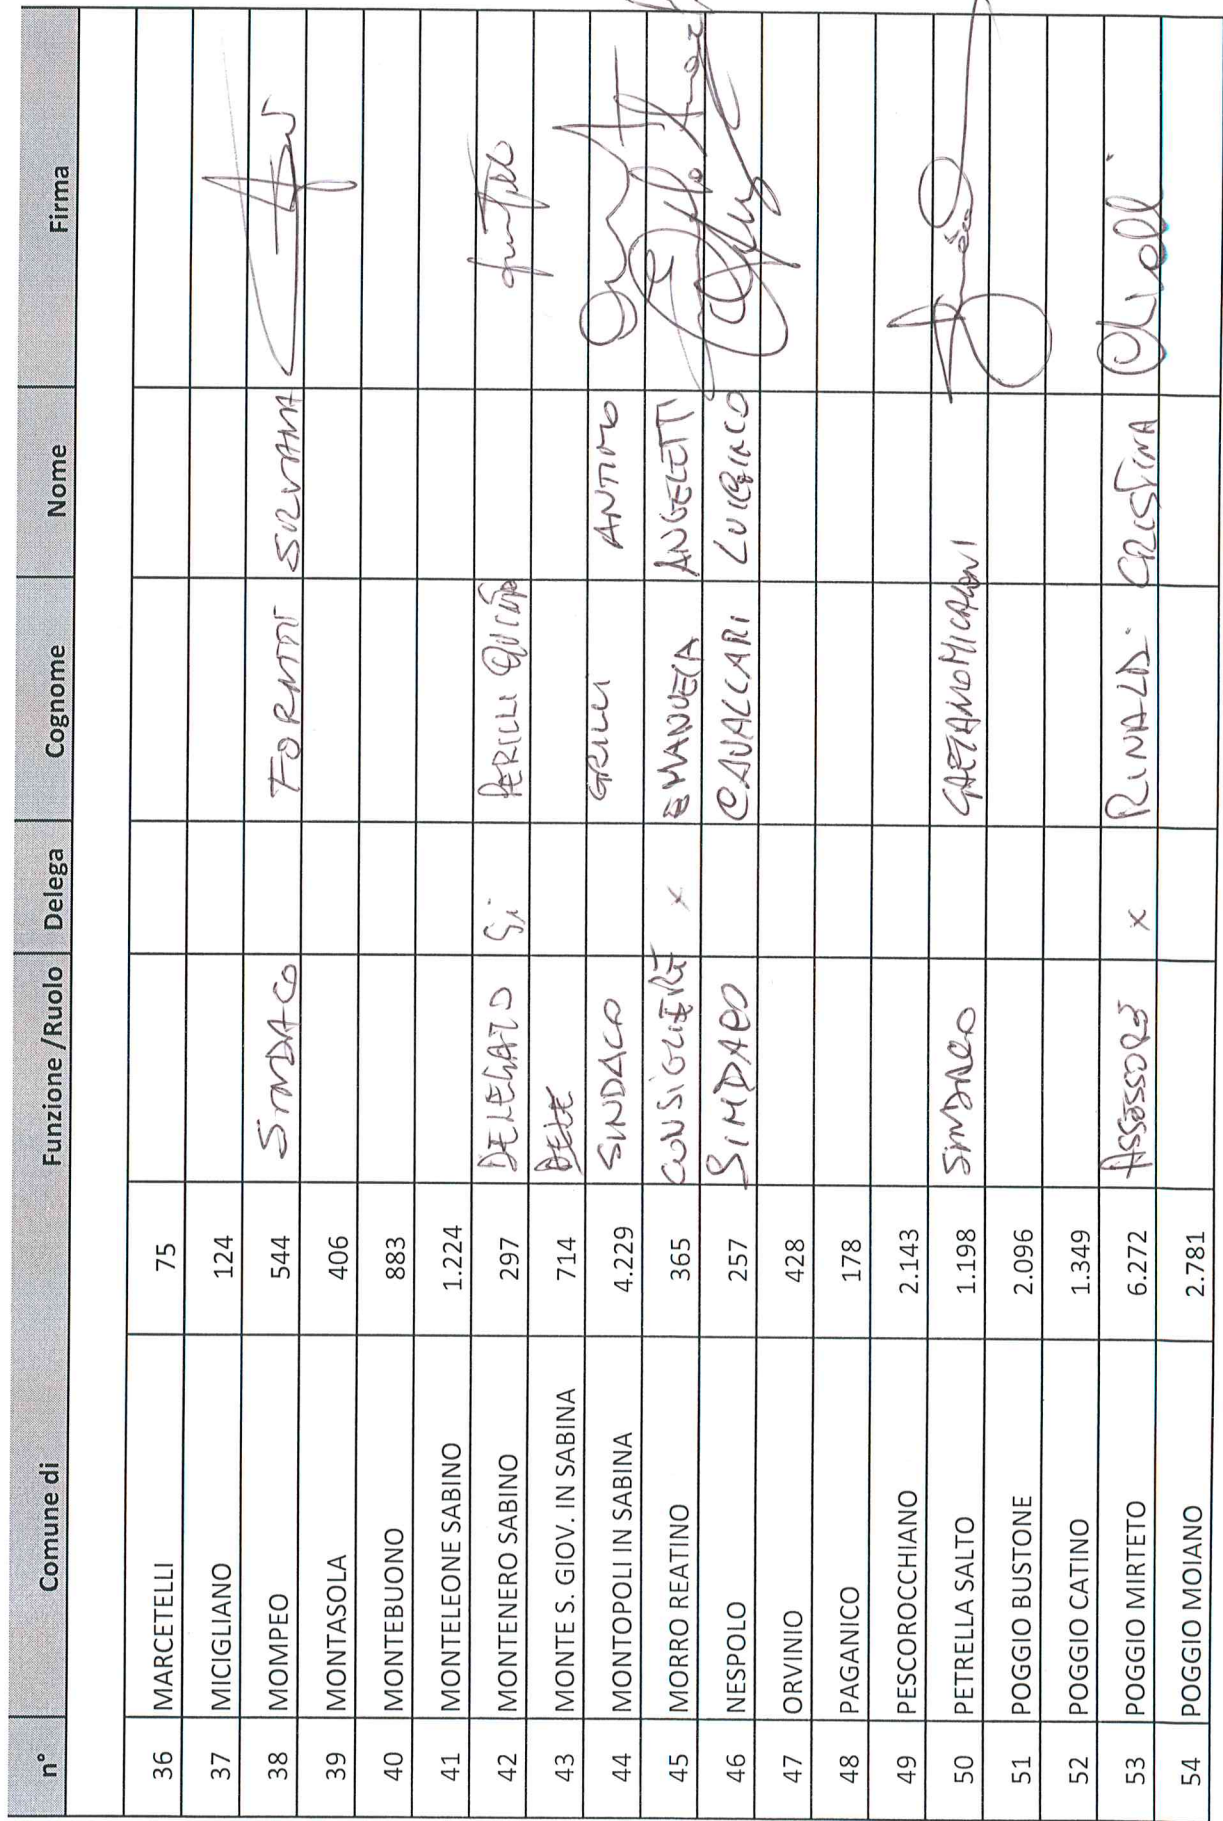 n° Comune di Funzione /Ruolo Delega Cognome Nome Firma
36 MARCETELLI 75
37 MICIGLIANO 124
38 MOMPEO 544 SINDACO FORMATI SILVANA
39 MONTASOLA 406
40 MONTEBUONO 883
41 MONTELEONE SABINO 1.224
42 MONTENERO SABINO 297 DELEGATO Si PERILLI
43 MONTE S. GIOV. IN SABINA 714 DELE
44 MONTOPOLI IN SABINA 4.229 SINDACO GRILLI ANTIMO
45 MORRO REATINO 365 CONSIGLIERE x EMANUELA ANGELETTI
46 NESPOLO 257 SINDACO CAVALLARI LUIGINO
47 ORVINIO 428
48 PAGANICO 178
49 PESCOROCCHIANO 2.143
50 PETRELLA SALTO 1.198 SINDACO GAETANO MICALONI
51 POGGIO BUSTONE 2.096
52 POGGIO CATINO 1.349
53 POGGIO MIRTETO 6.272 ASSESSORE x RINALDI CRISTINA
54 POGGIO MOIANO 2.781